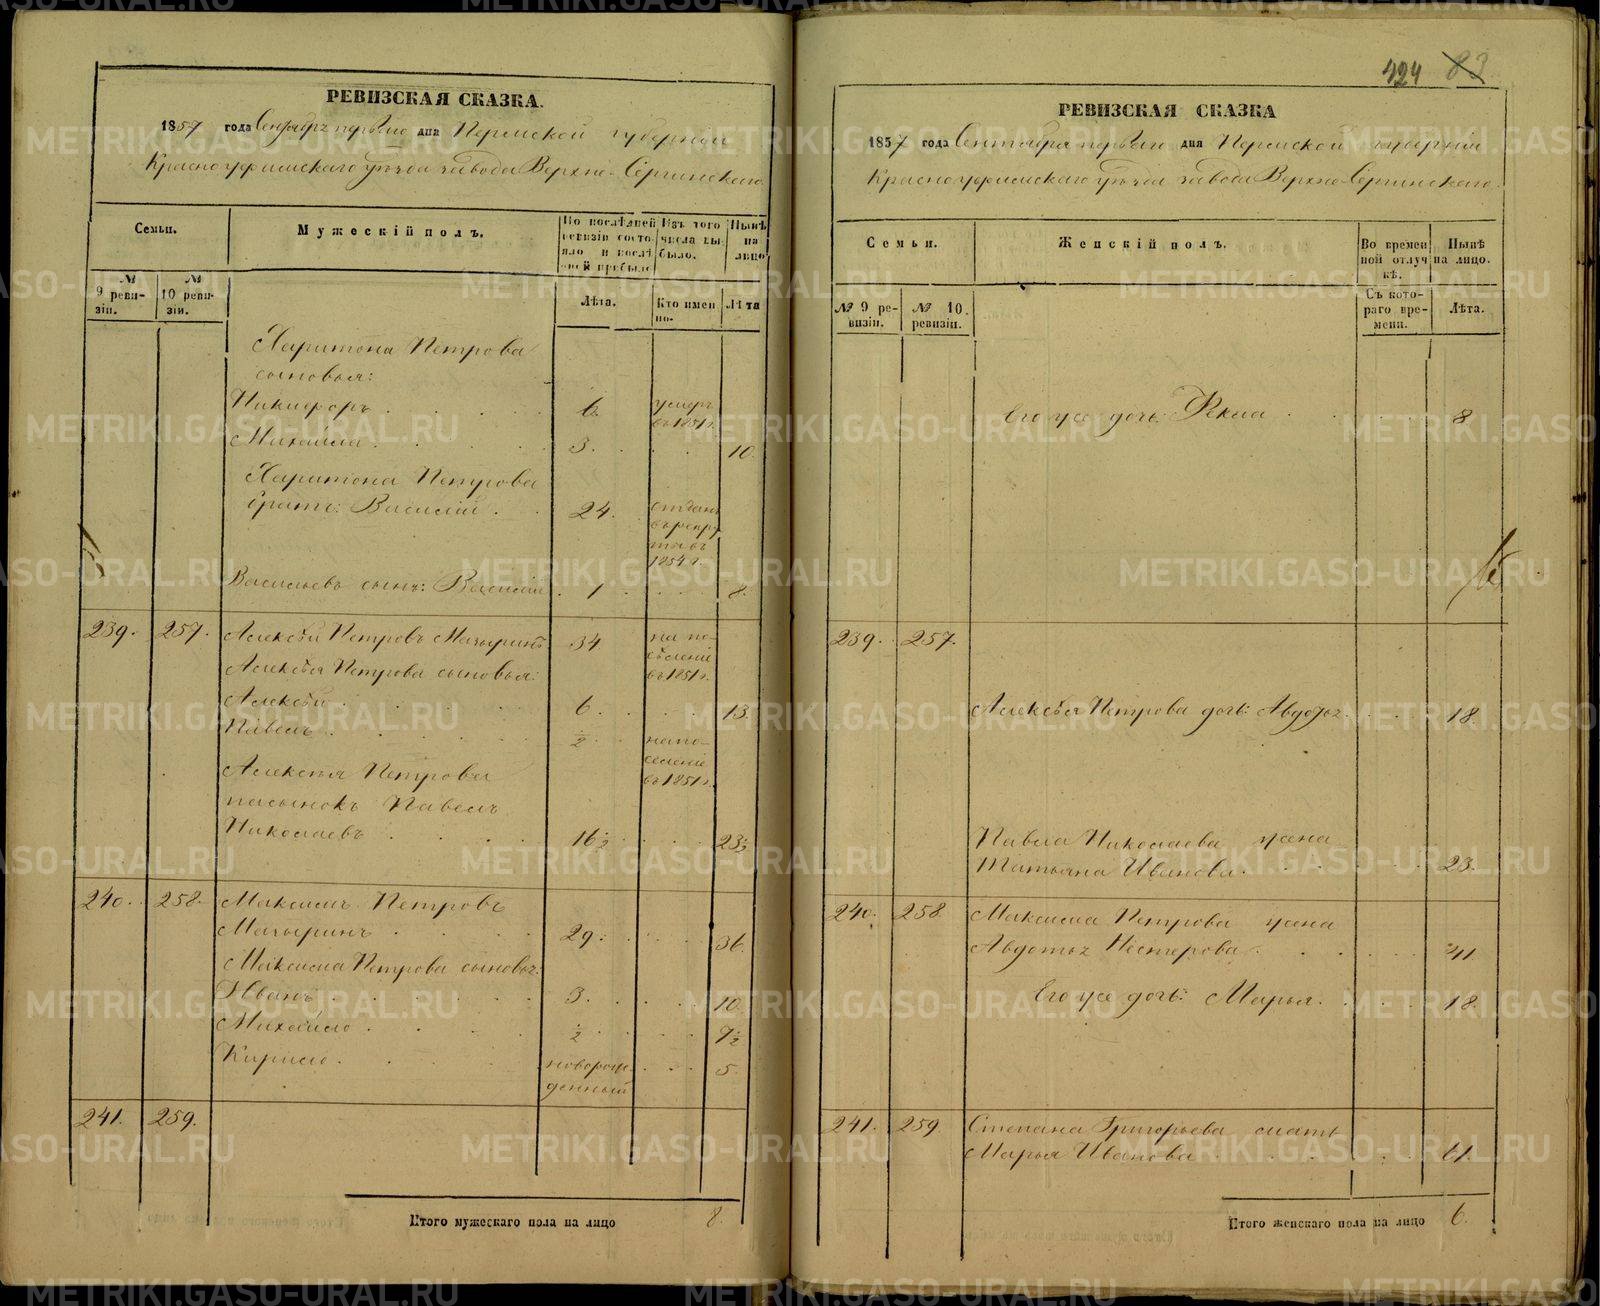 РЕВИЗСКАЯ СКАЗКА.
1857 года Сентября перваго дня Пермской губернии
Красноуфимскаго уѣзда завода Верхне-Сергинскаго
Семьи.
Мужескій полъ.
По послѣдней ревизіи состояло и послѣ оной прибыло
Изъ того числа выбыло.
Нынѣ на лицо
№ 9 ревизіи.
№ 10 ревизіи.
Лѣта.
Кто именно.
Лѣта
Харитона Петрова
сыновья:
Никифоръ . . . 6. умеръ въ 1851 г.
Михайла . . . 3. . . 10.
Харитона Петрова
братъ: Василій . . 24. отданъ въ рекруты въ 1854 г.
Васильевъ сынъ: Василій . 1 . . . 8.
239. 257. Алексѣй Петровъ Мачыринъ 34 на поселеніе въ 1851 г.
Алексѣя Петрова сыновья:
Алексѣй . . . 6 . . . 13.
Павелъ . . . ½ . на поселеніе въ 1851 г.
Алексѣя Петрова
пасынокъ Павелъ
Николаевъ . . . 16½ . . . 23½
240. 258. Максимъ Петровъ
Мачыринъ . . . 29. . . 36.
Максима Петрова сыновья:
Иванъ . . . 3. . . 10.
Михайло . . . ½ . . 7½
Кирило . . . новорожденный . . 5.
241. 259.
Итого мужескаго пола на лицо 8.
424 83
РЕВИЗСКАЯ СКАЗКА
1857 года Сентября перваго дня Пермской губерніи
Красноуфимскаго уѣзда завода Верхне-Сергинскаго
Семьи.
Женскій полъ.
Во временной отлучкѣ.
Нынѣ на лицо.
№ 9 ревизіи.
№ 10. ревизіи.
Съ котораго времени.
Лѣта.
Его же дочь: Фекла . . . 8
239. 257.
Алексѣя Петрова дочь: Авдотья . . . 18.
Павла Николаева жена
Татьяна Иванова . . . 23.
240. 258. Максима Петрова жена
Авдотья Нестерова . . . 41
Его же дочь: Марья . . . 18.
241. 259. Степана Григорьева мать
Марья Иванова . . . 61.
Итого женскаго пола на лицо 6.
METRIKI.GASO-URAL.RU